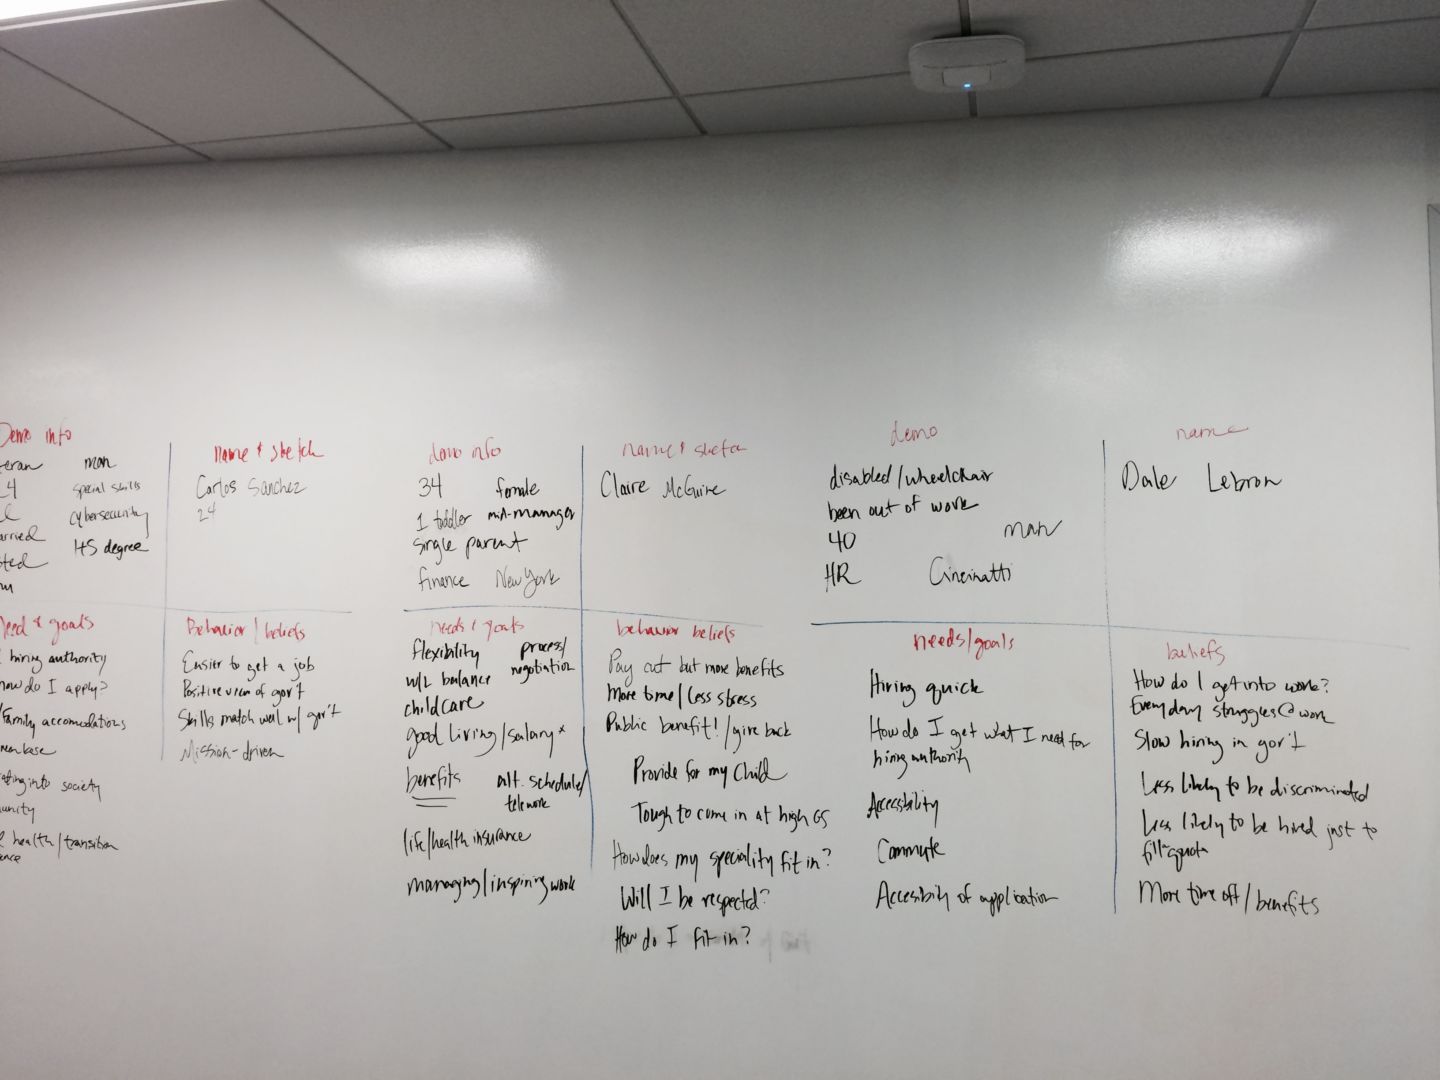 Demo info
man
24
special skills
cybersecurity
HS degree
name & sketch
Carlos Sanchez
24
Need & goals
hiring authority
how do I apply?
/Family accomodations
base
into society
health/transition
Behavior / beliefs
Easier to get a job
Positive view of gov't
Skills match well w/ gov't
Mission-driven
demo info
34 female
1 toddler mid-manager
single parent
finance New York
name & sketch
Claire McGuire
needs & goals
flexibility process/
negotiation
w/L balance
childcare
good living/salary*
benefits alt. schedule/
telework
life/health insurance
managing/inspiring work
behavior beliefs
Pay cut but more benefits
More time/Less stress
Public benefit!/give back
Provide for my Child
Tough to come in at high GS
How does my speciality fit in?
Will I be respected?
How do I fit in?
demo
disabled/wheelchair
been out of work
40 man
HR Cincinatti
name
Dale Lebron
needs/goals
Hiring quick
How do I get what I need for
hiring authority
Accessibility
Commute
Accesibity of application
beliefs
How do I get into work?
Everyday struggles @ work
Slow hiring in gov't
Less likely to be discriminated
Less likely to be hired just to
fill quota
More time off/benefits